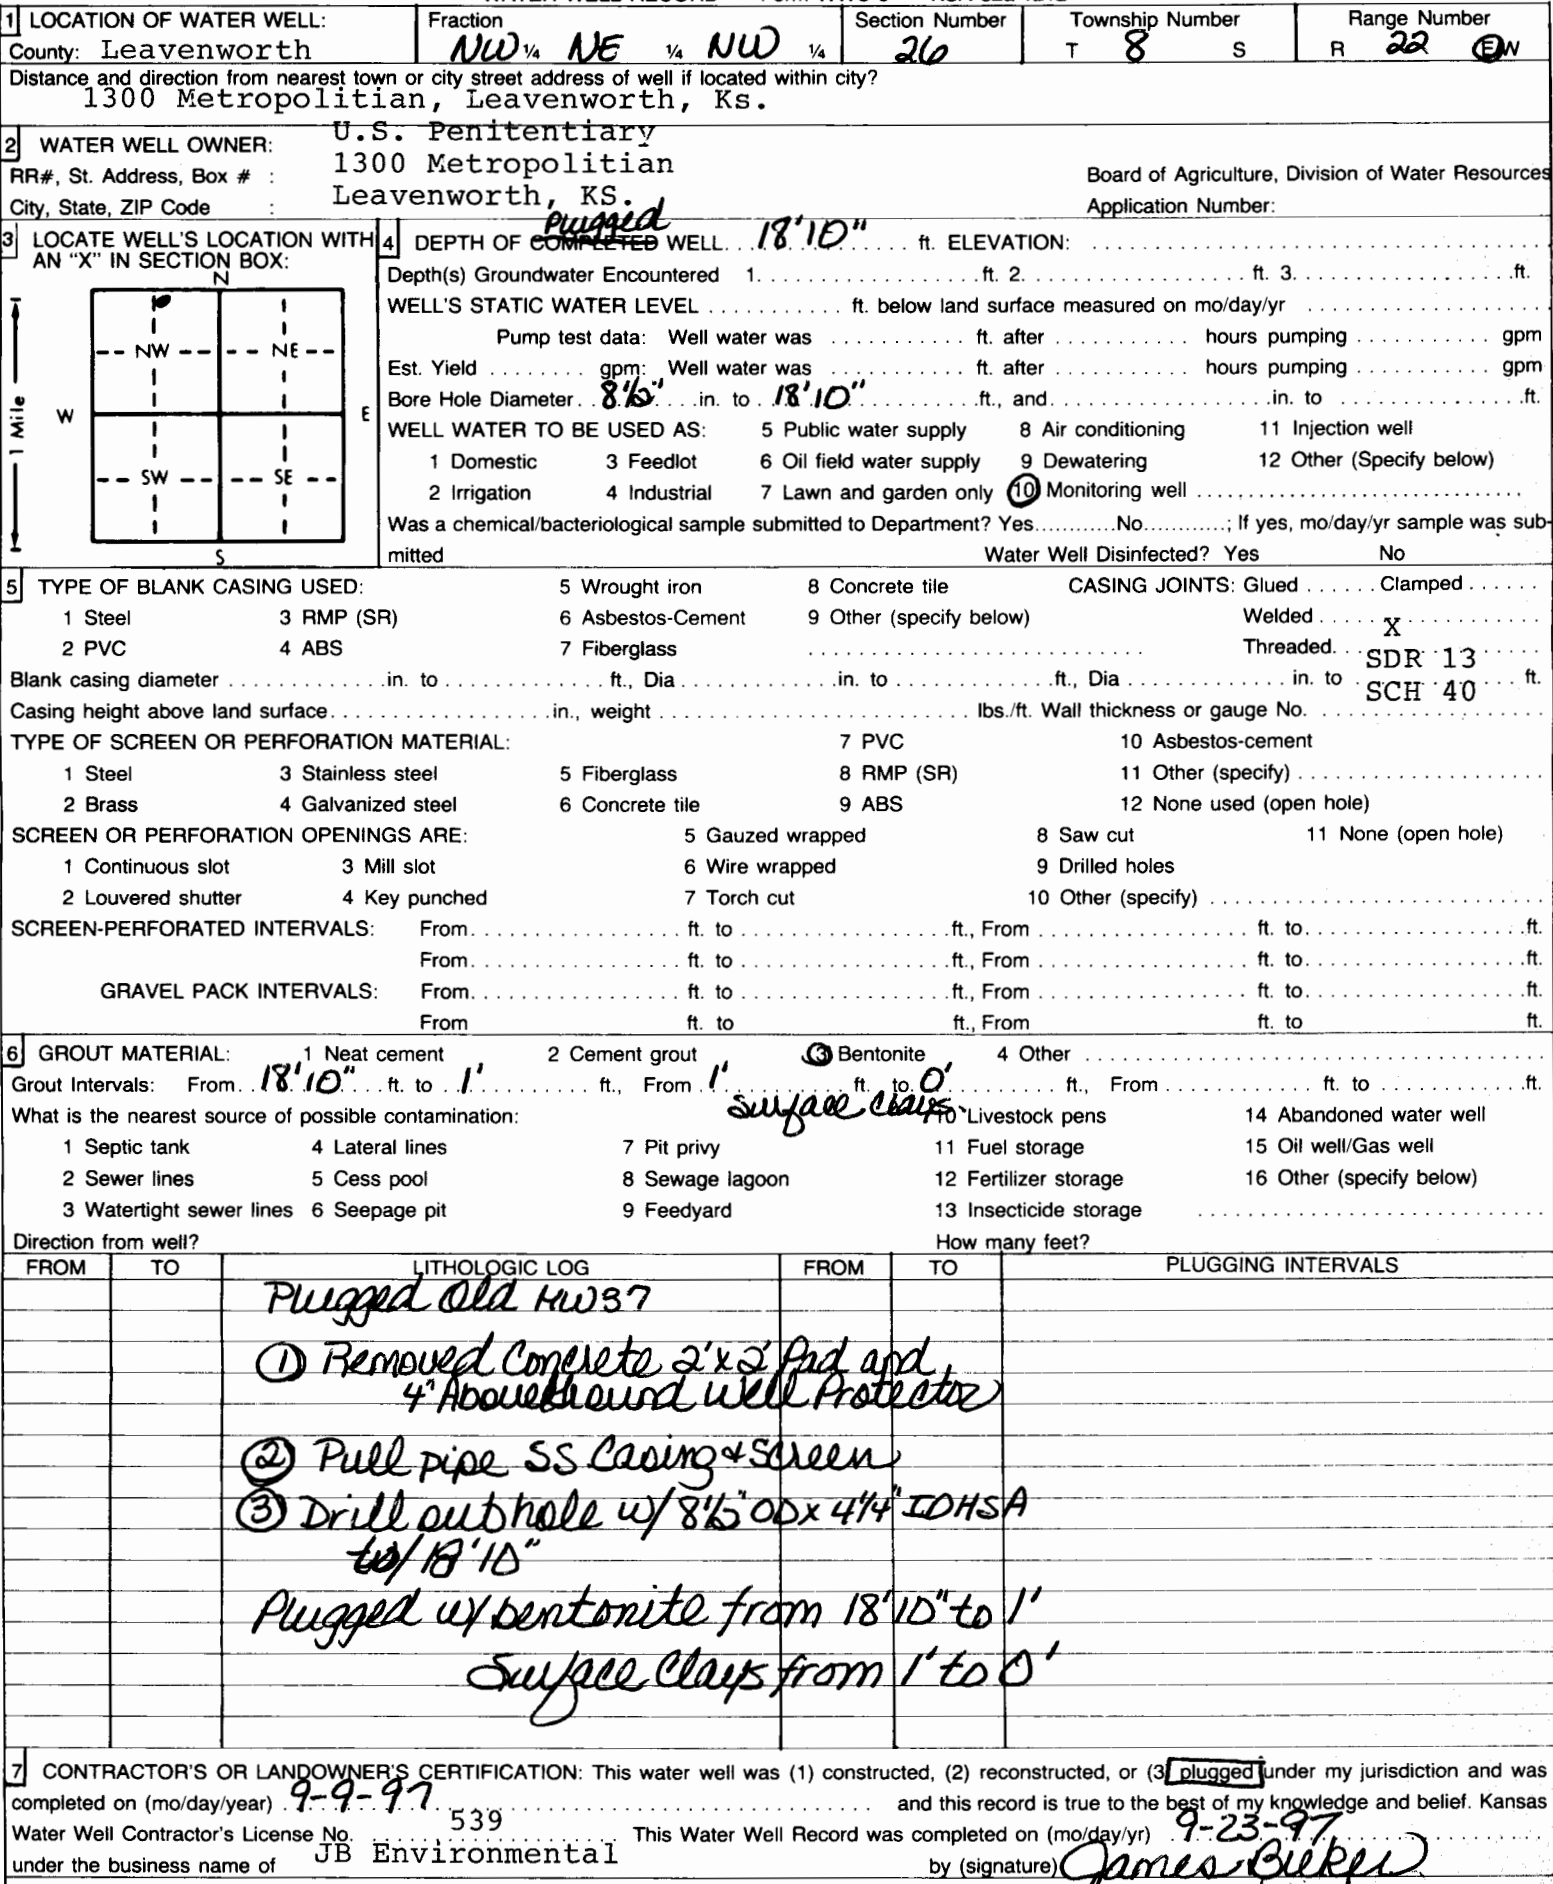 1 LOCATION OF WATER WELL: Fraction Section Number Township Number Range Number
County: Leavenworth NW ¼ NE ¼ NW ¼ 26 T 8 S R 22 E/W
Distance and direction from nearest town or city street address of well if located within city?
1300 Metropolitian, Leavenworth, Ks.
2 WATER WELL OWNER: U.S. Penitentiary
RR#, St. Address, Box # : 1300 Metropolitian Board of Agriculture, Division of Water Resources
City, State, ZIP Code : Leavenworth, KS. Application Number:
3 LOCATE WELL'S LOCATION WITH AN "X" IN SECTION BOX:
N
NW NE
W E
SW SE
S
1 Mile
4 DEPTH OF COMPLETED Plugged WELL 18'10" ft. ELEVATION:
Depth(s) Groundwater Encountered 1. ft. 2. ft. 3. ft.
WELL'S STATIC WATER LEVEL ft. below land surface measured on mo/day/yr
Pump test data: Well water was ft. after hours pumping gpm
Est. Yield gpm: Well water was ft. after hours pumping gpm
Bore Hole Diameter 8½" in. to 18'10" ft., and in. to ft.
WELL WATER TO BE USED AS: 5 Public water supply 8 Air conditioning 11 Injection well
1 Domestic 3 Feedlot 6 Oil field water supply 9 Dewatering 12 Other (Specify below)
2 Irrigation 4 Industrial 7 Lawn and garden only 10 Monitoring well
Was a chemical/bacteriological sample submitted to Department? Yes No ; If yes, mo/day/yr sample was sub-
mitted Water Well Disinfected? Yes No
5 TYPE OF BLANK CASING USED: 5 Wrought iron 8 Concrete tile CASING JOINTS: Glued Clamped
1 Steel 3 RMP (SR) 6 Asbestos-Cement 9 Other (specify below) Welded
2 PVC 4 ABS 7 Fiberglass Threaded. X
Blank casing diameter in. to ft., Dia in. to ft., Dia in. to SDR 13 ft.
Casing height above land surface in., weight lbs./ft. Wall thickness or gauge No. SCH 40
TYPE OF SCREEN OR PERFORATION MATERIAL: 7 PVC 10 Asbestos-cement
1 Steel 3 Stainless steel 5 Fiberglass 8 RMP (SR) 11 Other (specify)
2 Brass 4 Galvanized steel 6 Concrete tile 9 ABS 12 None used (open hole)
SCREEN OR PERFORATION OPENINGS ARE: 5 Gauzed wrapped 8 Saw cut 11 None (open hole)
1 Continuous slot 3 Mill slot 6 Wire wrapped 9 Drilled holes
2 Louvered shutter 4 Key punched 7 Torch cut 10 Other (specify)
SCREEN-PERFORATED INTERVALS: From ft. to ft., From ft. to ft.
From ft. to ft., From ft. to ft.
GRAVEL PACK INTERVALS: From ft. to ft., From ft. to ft.
From ft. to ft., From ft. to ft.
6 GROUT MATERIAL: 1 Neat cement 2 Cement grout 3 Bentonite 4 Other
Grout Intervals: From 18'10" ft. to 1' ft., From 1' ft. to 0' ft., From ft. to ft.
Surface Clays
What is the nearest source of possible contamination: 10 Livestock pens 14 Abandoned water well
1 Septic tank 4 Lateral lines 7 Pit privy 11 Fuel storage 15 Oil well/Gas well
2 Sewer lines 5 Cess pool 8 Sewage lagoon 12 Fertilizer storage 16 Other (specify below)
3 Watertight sewer lines 6 Seepage pit 9 Feedyard 13 Insecticide storage
Direction from well? How many feet?
FROM TO LITHOLOGIC LOG FROM TO PLUGGING INTERVALS
Plugged Old MW37
① Removed Concrete 2'x2' Pad and
4" AboveGround Well Protector
② Pull pipe SS Casing & Screen
③ Drill out hole w/ 8½" OD x 4¼" IDHSA
to 18'10"
Plugged w/ bentonite from 18'10" to 1'
Surface Clays from 1' to 0'
7 CONTRACTOR'S OR LANDOWNER'S CERTIFICATION: This water well was (1) constructed, (2) reconstructed, or (3) plugged under my jurisdiction and was
completed on (mo/day/year) 9-9-97 and this record is true to the best of my knowledge and belief. Kansas
Water Well Contractor's License No. 539 This Water Well Record was completed on (mo/day/yr) 9-23-97
under the business name of JB Environmental by (signature) James Bieker